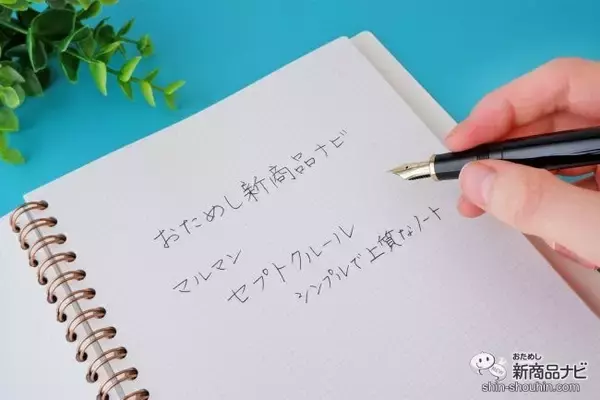 おためし新商品ナビ
マルマン
セプトクルール
シンプルで上質なノート
おためし
新商品ナビ
shin-shouhin.com